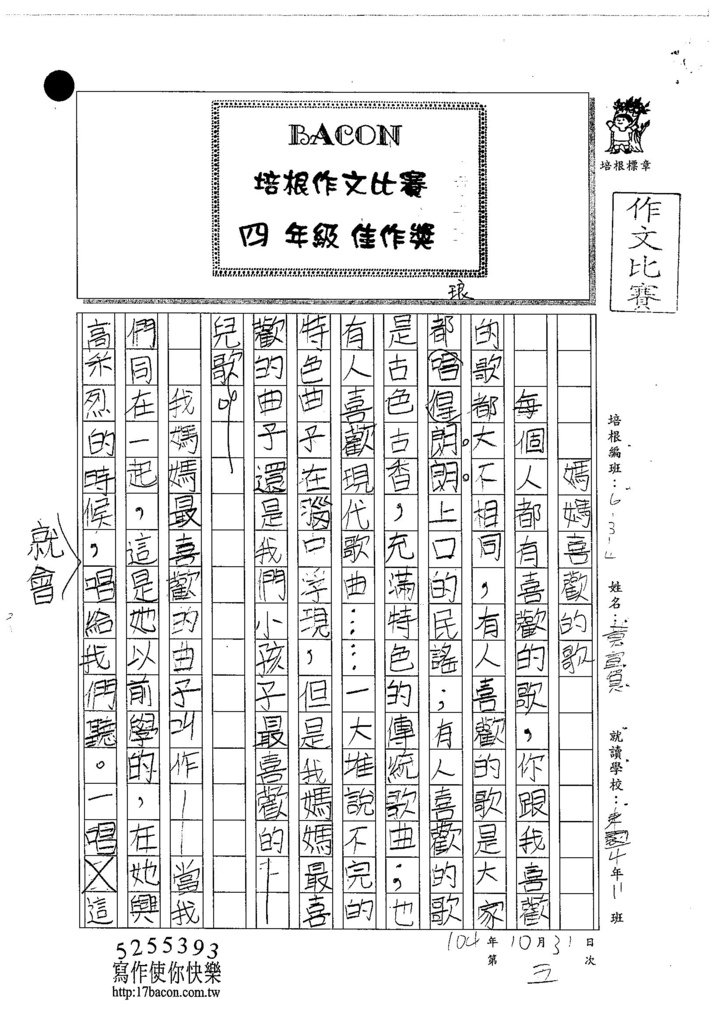 BACON
培根作文比賽
四 年級 佳作獎
培根標章
作文比賽
培根編班：6-3
姓名：
就讀學校：
4年11班
104年10月31日
第五次
媽媽喜歡的歌
每個人都有喜歡的歌，你跟我喜歡
的歌都大不相同，有人喜歡的歌是大家
都唱得朗朗上口的民謠；有人喜歡的歌
琅
是古色古香，充滿特色的傳統歌曲；也
有人喜歡現代歌曲……一大堆說不完的
特色曲子在腦中浮現，但是我媽媽最喜
歡的曲子還是我們小孩子最喜歡的—
兒歌。
我媽媽最喜歡的曲子叫作—當我
們同在一起，這是她以前學的，在她興
高采烈的時候，唱給我們聽。一唱這
就會
5255393
寫作使你快樂
http:17bacon.com.tw